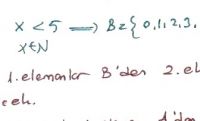 x < 5 ⟹ B = {0,1,2,3,
x∈N
1. elemanlar B'den 2. el
cek.